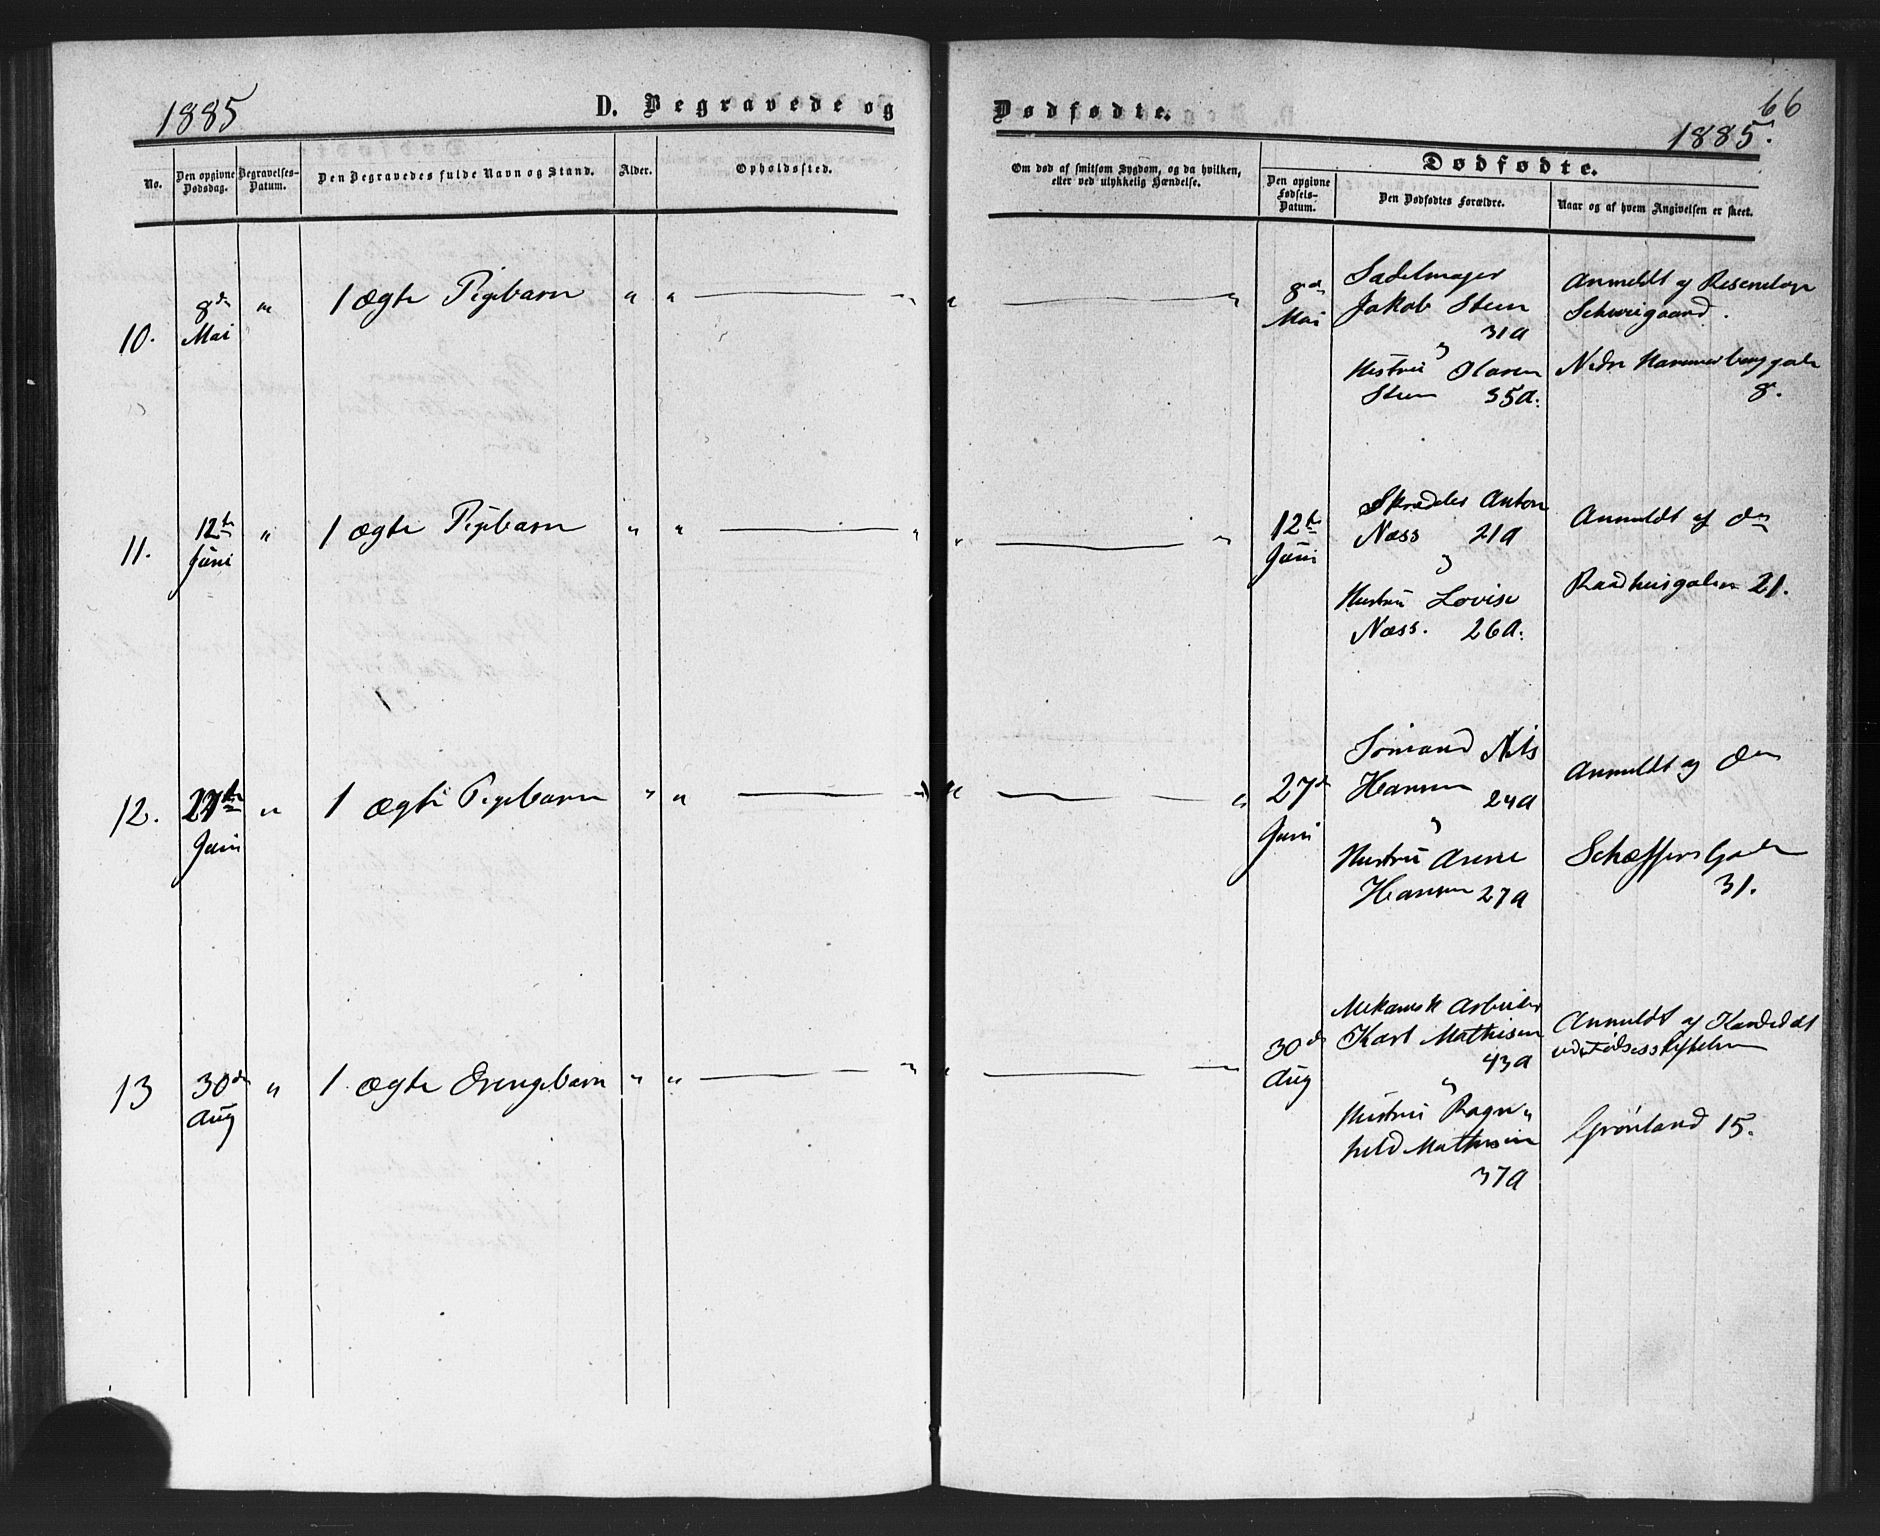 1885
D. Begravede og
Dødfødte.
66
1885.
No.
Den opgivne Dødsdag.
Begravelses-Datum.
Den Begravedes fulde Navn og Stand.
Alder.
Opholdssted.
Om død af smitsom Sygdom, og da hvilken,
eller ved ulykkelig Hændelse.
Dødfødte.
Den opgivne
Fødsels-
Datum.
Den Dødfødtes Forældre.
Naar og af hvem Angivelsen er skeet.
10.
8de
Mai
"
1 ægte Pigebarn
" " — "
" — "
8de
Mai
Sadelmager
Jakob Steen
31 a
og
Hustru Olava
Steen 35 a.
Anmeldt af
Schweigaard.
Nedre Hammersborggade
8.
11.
12te
Juni
"
1 ægte Pigebarn
" " — "
" — "
12te
Juni
Skrædder Anton
Næss 21 a
og
Hustru Lovise
Næss. 26 a.
Anmeldt af do
Raadhusgaden 21.
12.
27de
Juni
"
1 ægte Pigebarn
" " — "
" — "
27de
Juni
Sømand Nils
Hansen 24 a
og
Hustru Arene
Hansen 27 a
Anmeldt af do
Schæffers Gade
31.
13
30de
Aug
"
1 ægte Drengebarn
" " — "
" — "
30de
Aug
Mekanisk Arbeider
Karl Mathisen
43 a
og
Hustru Ragn-
hild Mathisen
37 a
Anmeldt af Kandidat
ved Fødselsstiftelsen
Grønland 15.